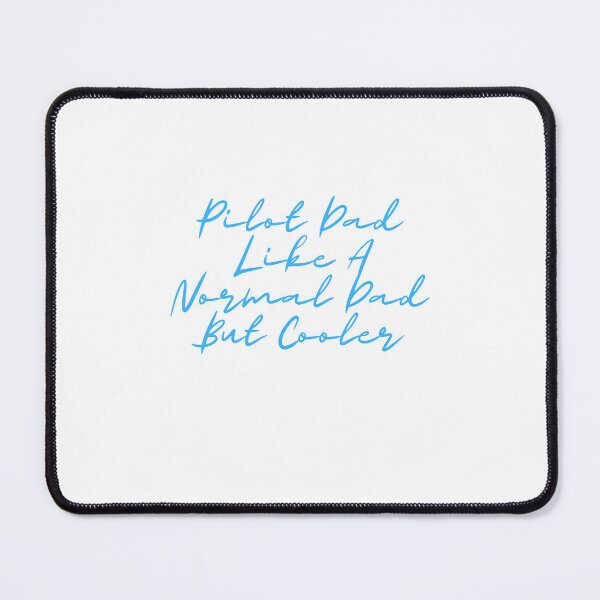 Pilot Dad
Like A
Normal Dad
But Cooler